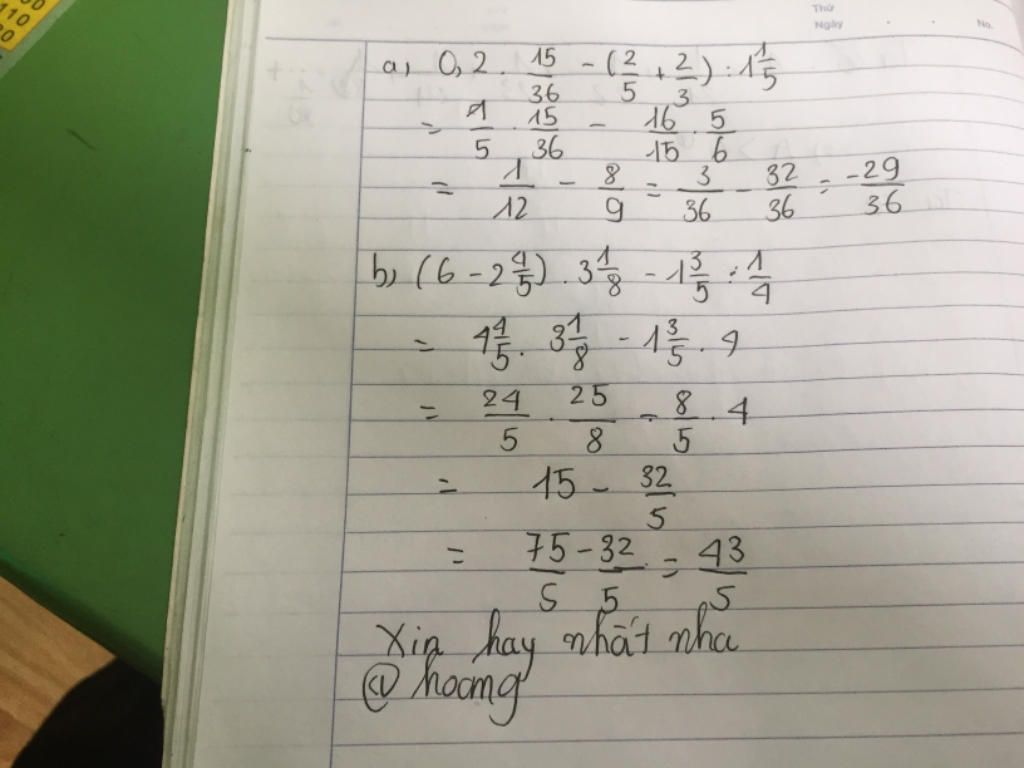 00
110
20
Thứ
Ngày . . No.
a, 0,2 . 15/36 - (2/5 + 2/3) : 1 1/5
= 1/5 . 15/36 - 16/15 . 5/6
= 1/12 - 8/9 = 3/36 - 32/36 = -29/36
b, (6 - 2 4/5) . 3 1/8 - 1 3/5 : 1/4
= 4 4/5 . 3 1/8 - 1 3/5 . 4
= 24/5 . 25/8 - 8/5 . 4
= 15 - 32/5
= 75/5 - 32/5 = 43/5
Xin hay nhất nha
@ hoang